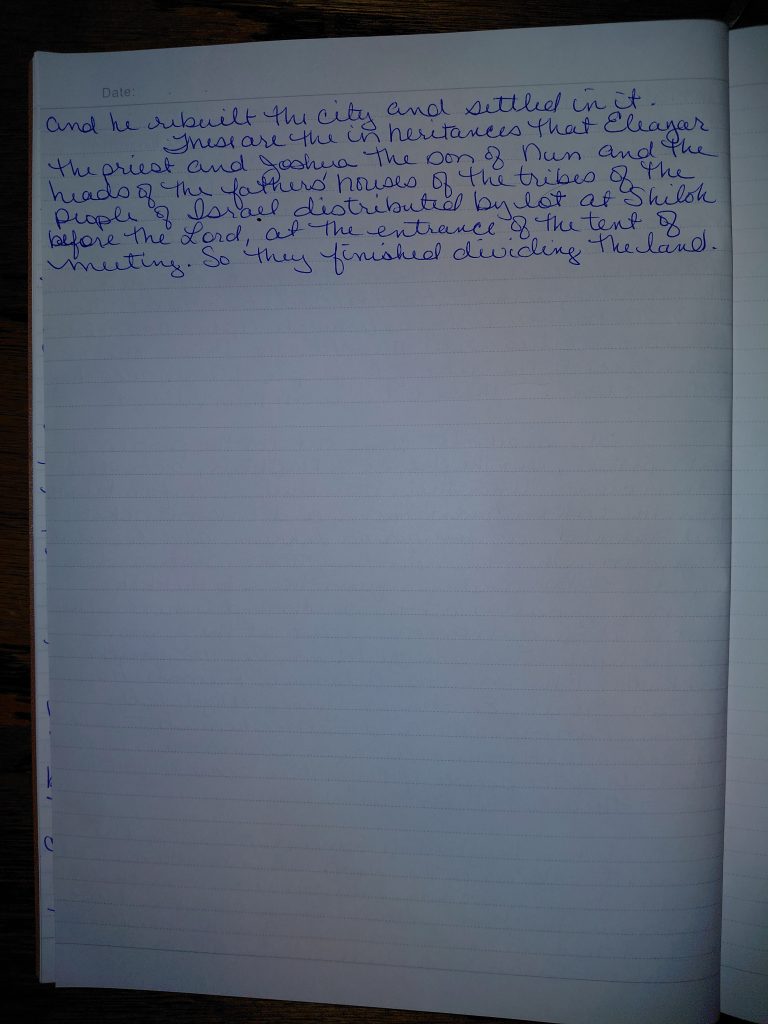 Date:
and he rebuilt the city and settled in it.
These are the inheritances that Eleazar
the priest and Joshua the son of Nun and the
heads of the fathers' houses of the tribes of the
people of Israel distributed by lot at Shiloh
before the Lord, at the entrance of the tent of
meeting. So they finished dividing the land.